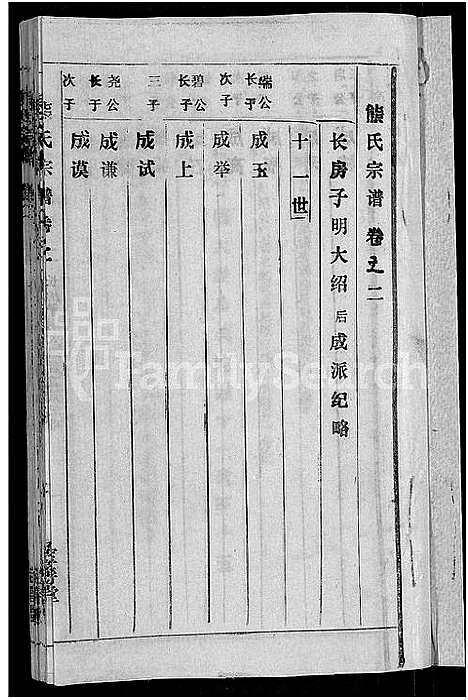 熊氏宗谱 卷之二
长房子明大绍后成派纪略
十一世
瑞公长子 成玉
次子 成举
碧公长子 成上
三子 成试
尧公长子 成谦
次子 成谟
熊氏宗谱 卷之二
FamilySearch